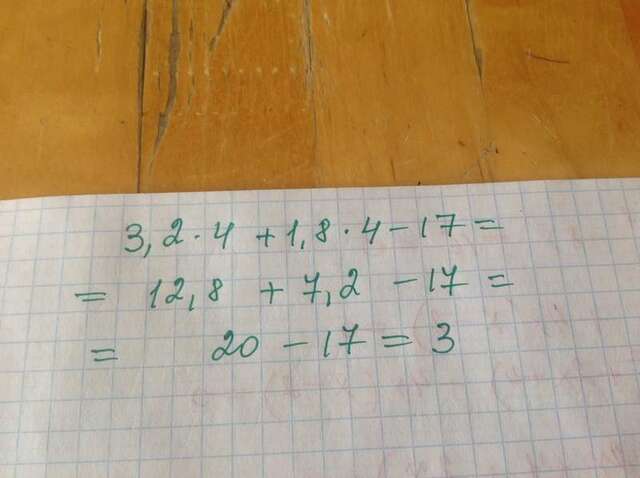 3,2·4 +1,8·4-17=
= 12,8 + 7,2 -17 =
= 20 -17 = 3